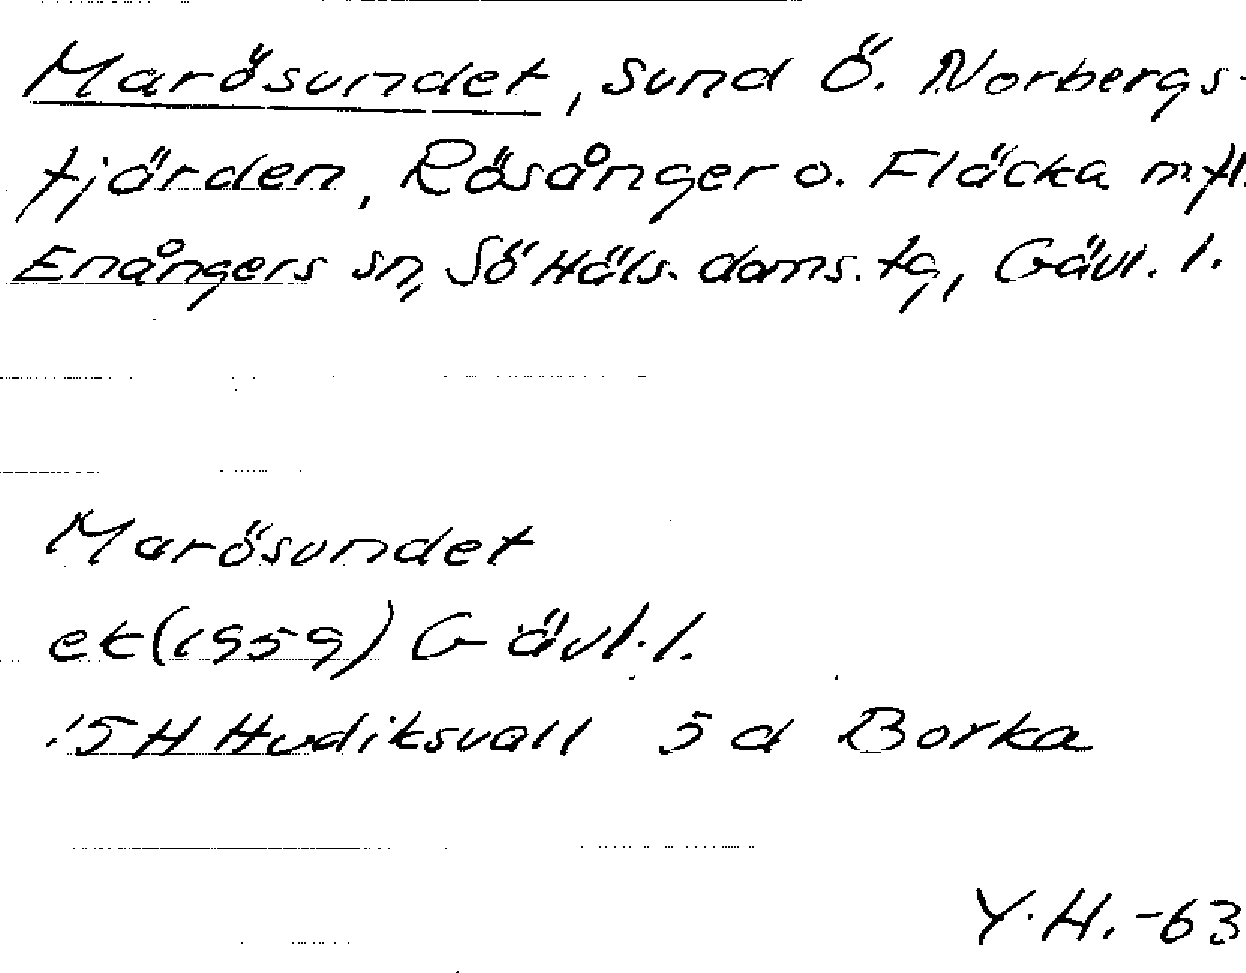 Marösundet, sund Ö. Norbergs-
fjärden, Rösånger o. Fläcka m.fl.
Enångers sn, Sö Häls. doms. tg, Gävl. l.
Marösundet
ek (1959) Gävl. l.
15 H Hudiksvall 5 d Borka
Y. H. -63